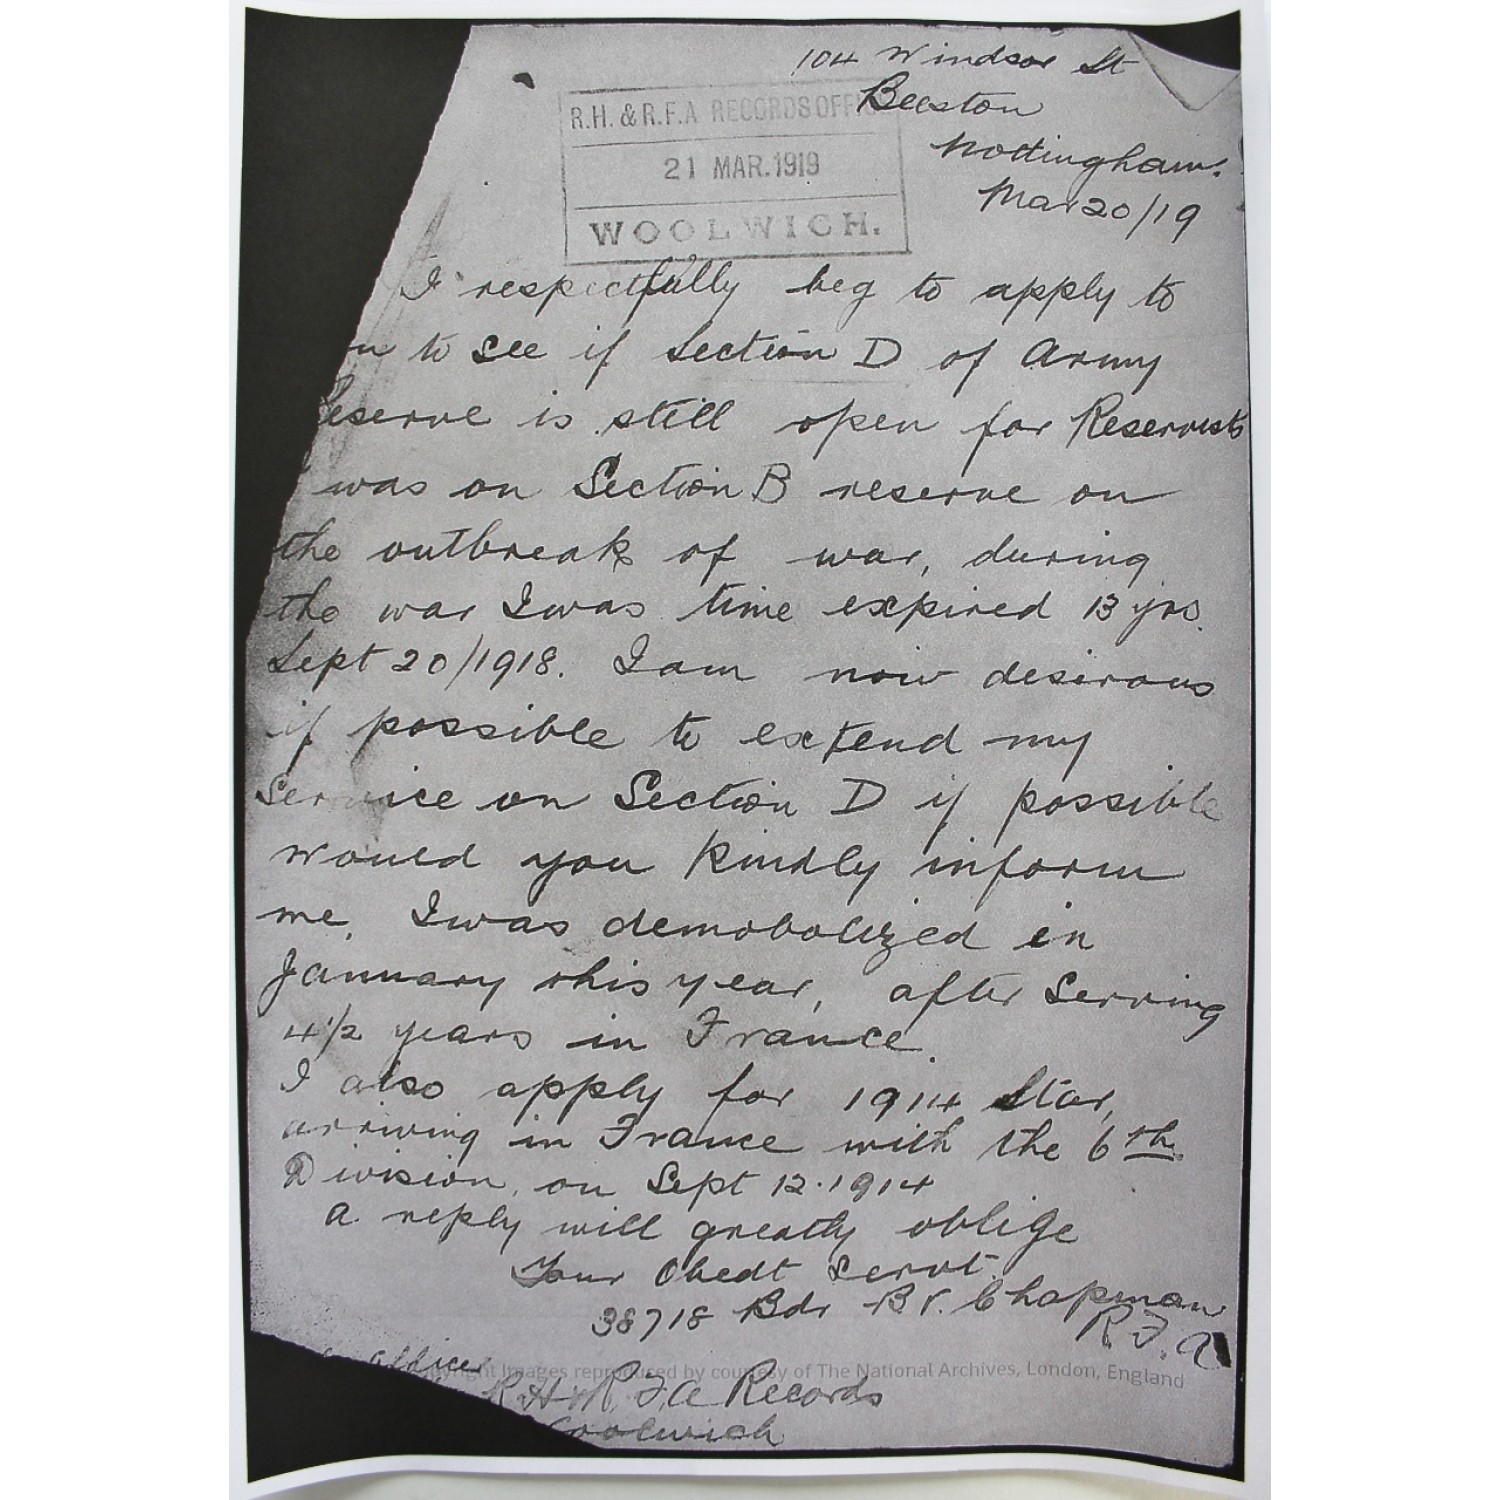 104 Windsor St
Beeston
Nottingham.
Mar 20/19
R.H. & R.F.A RECORDS OFFICE
21 MAR. 1919
WOOLWICH.
I respectfully beg to apply to
to see if Section D of Army
Reserve is still open for Reservists
was on Section B reserve on
the outbreak of war, during
the war I was time expired 13 yrs.
Sept 20/1918. I am now desirous
if possible to extend my
Service on Section D if possible
would you kindly inform
me, I was demobolized in
January this year, after serving
4 1/2 years in France.
I also apply for 1914 Star,
arriving in France with the 6th
Division, on Sept 12.1914
a reply will greatly oblige
Your Obedt Servt.
38718 Bdr B.V. Chapman
R.F.A.
Officer
Copyright Images reproduced by courtesy of The National Archives, London, England
R.H & R.F.A Records
Woolwich